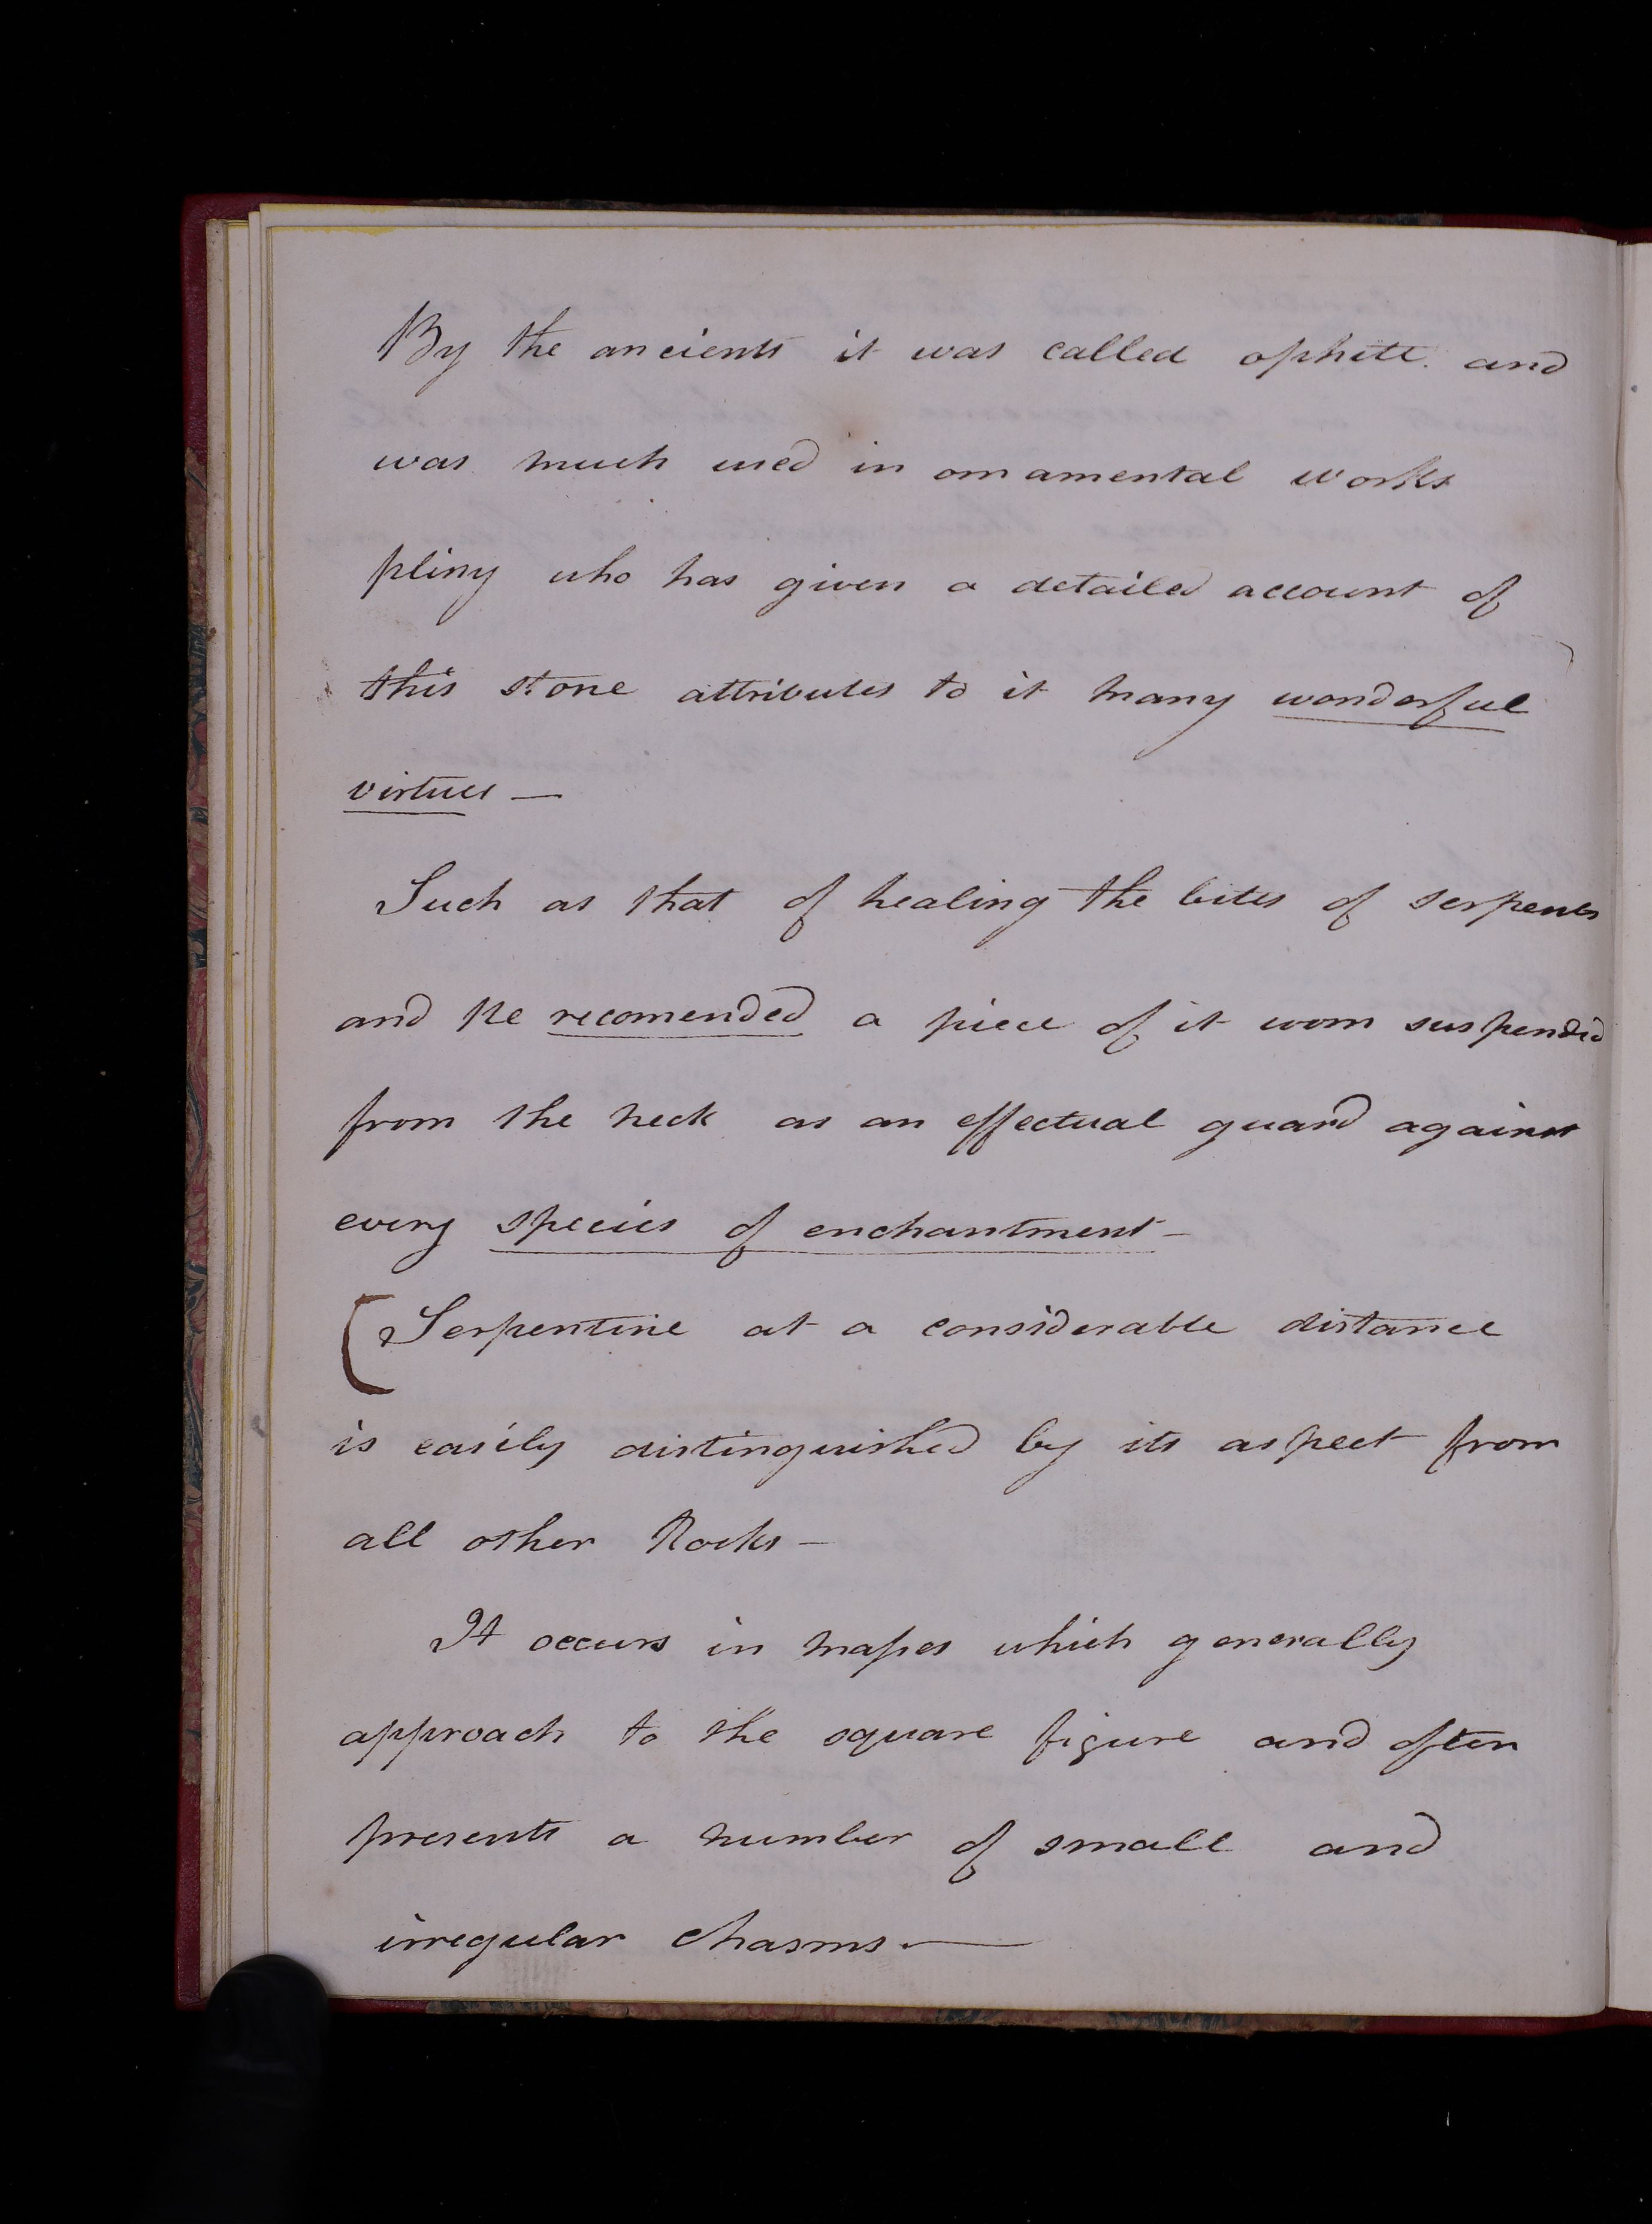 By the ancients it was called ophite. and
was much used in ornamental works
pliny who has given a detailed account of
this stone attributes to it many wonderful
virtues —
Such as that of healing the bites of serpents
and he recomended a piece of it worn suspended
from the neck as an effectual guard against
every species of enchantment —
[Serpentine at a considerable distance
is easily distinguished by its aspect from
all other Rocks —
It occurs in maſses which generally
approach to the square figure and often
presents a number of small and
irregular chasms. —